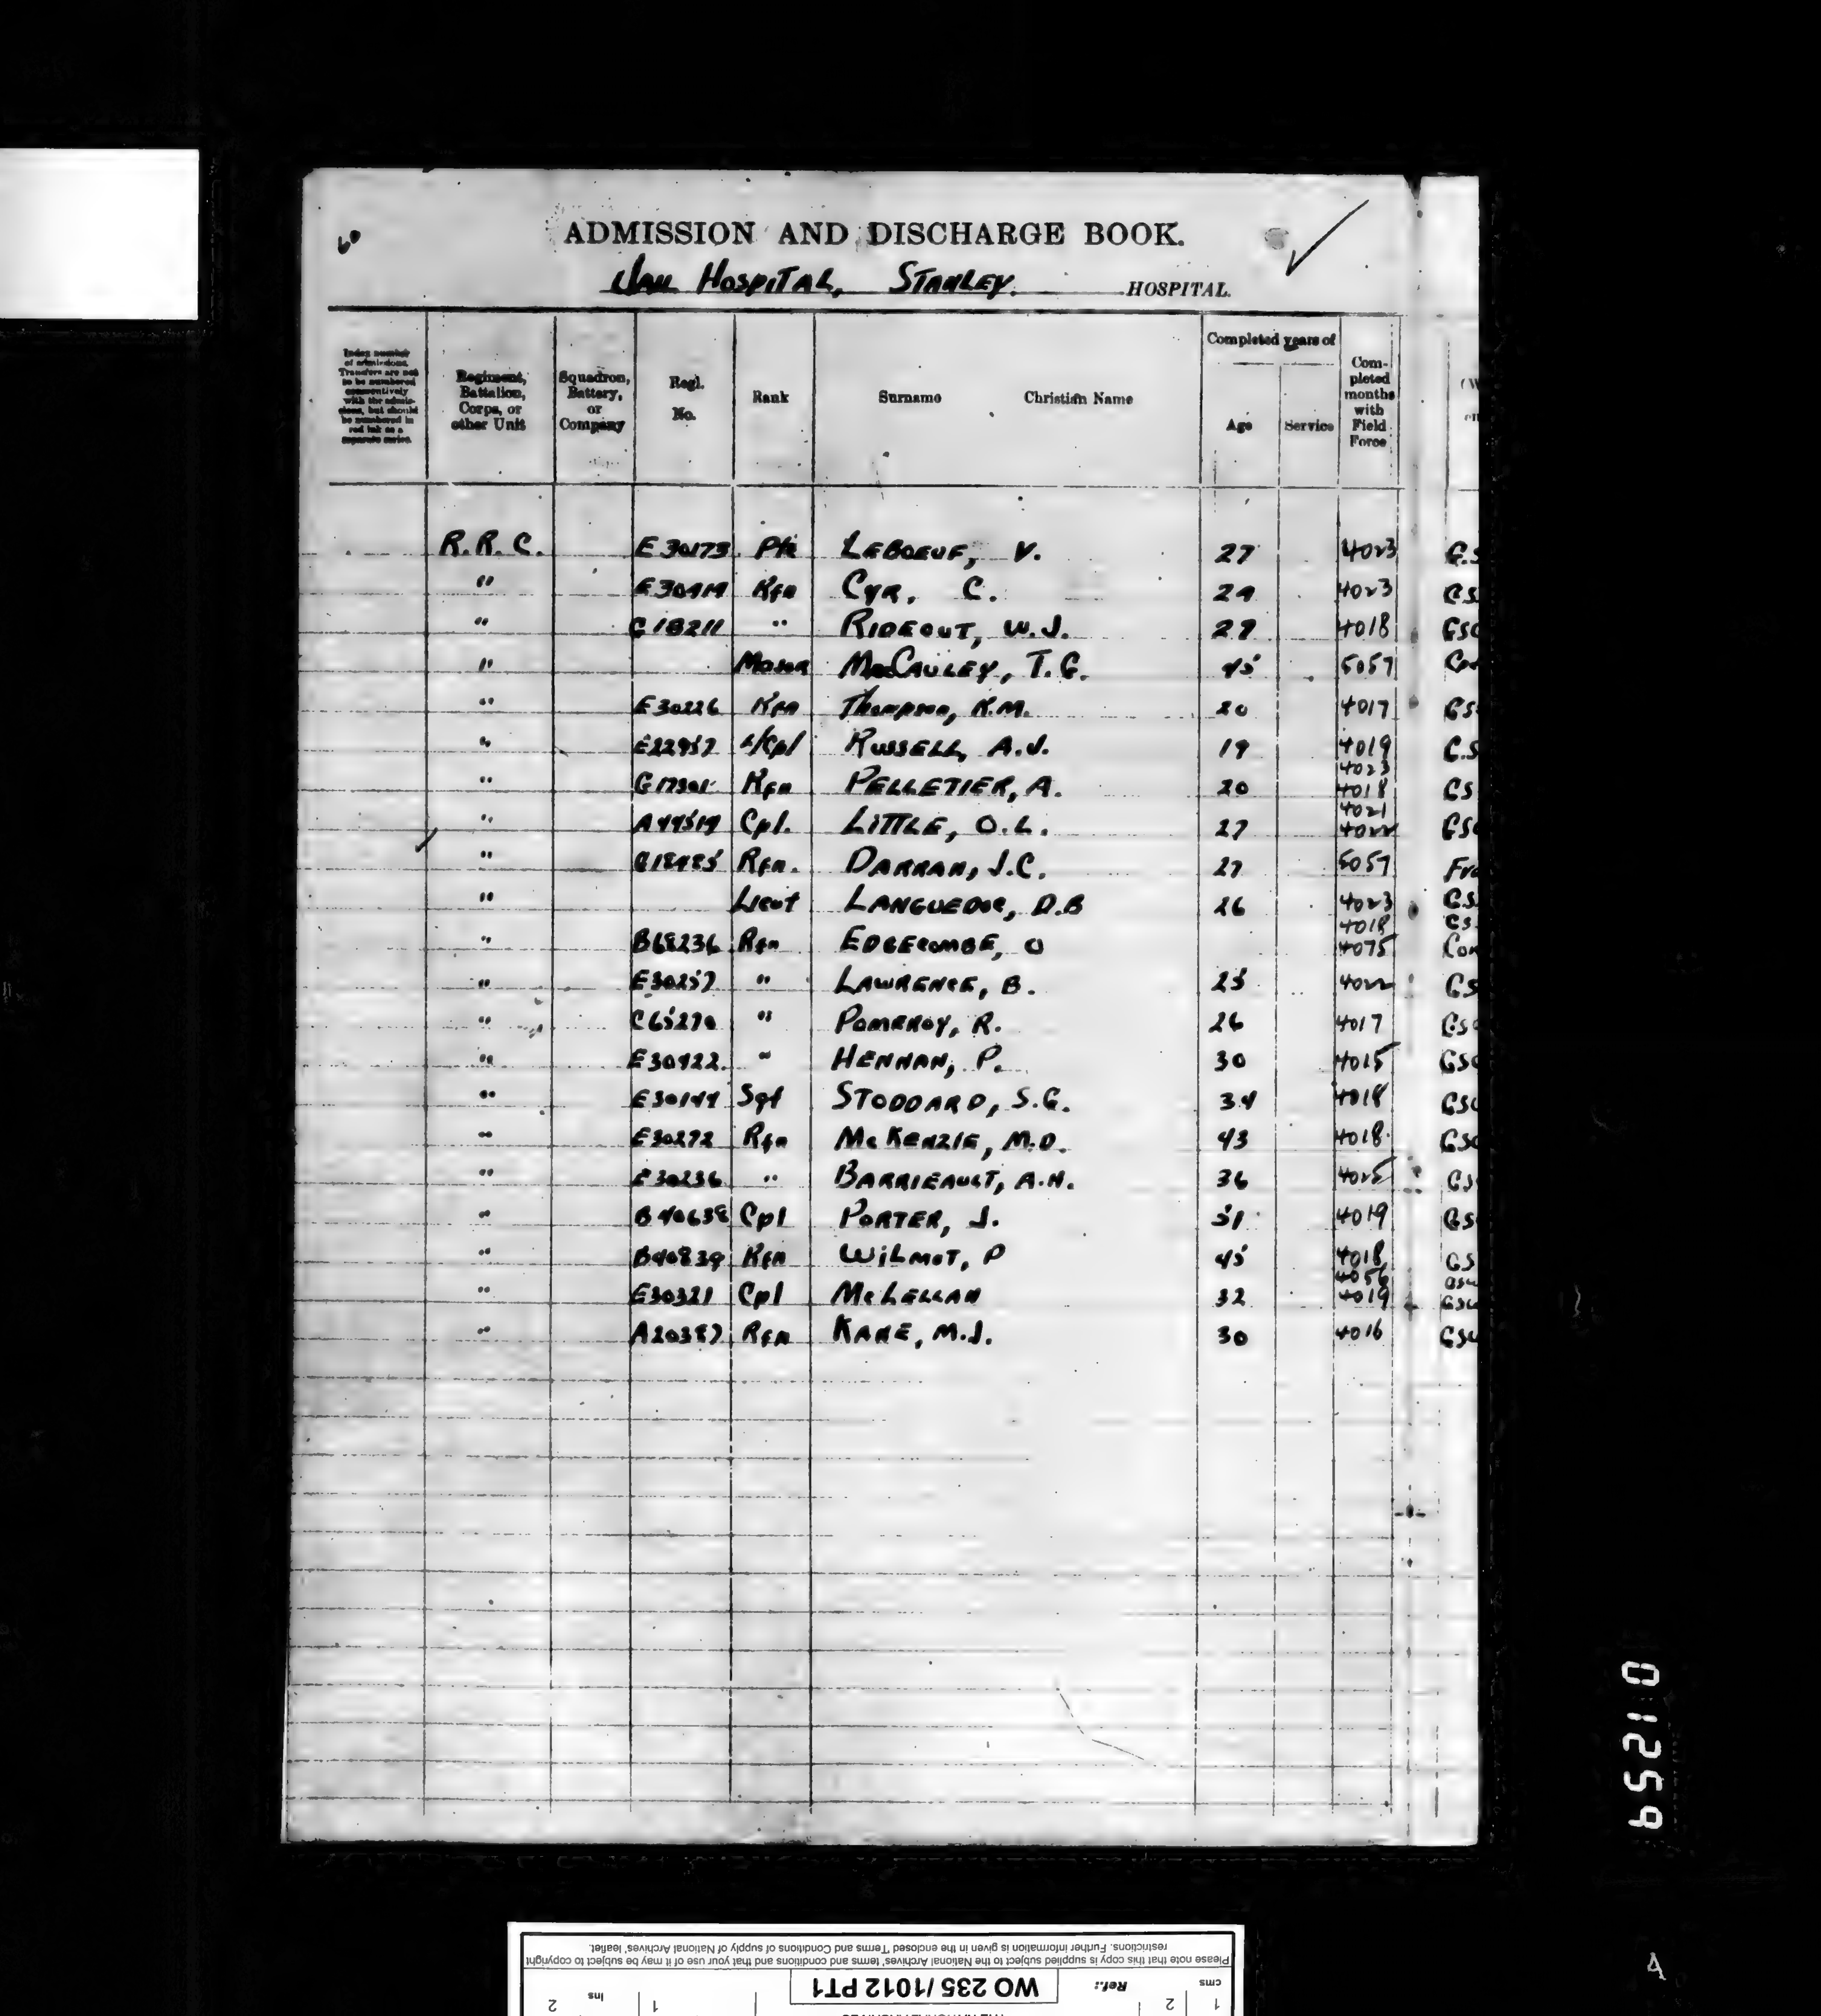 60
ADMISSION AND DISCHARGE BOOK.
Jail Hospital, Stanley. HOSPITAL.
Index number of admissions. Transfers are not to be numbered consecutively with the admissions, but should be numbered in red ink as a separate series.
Regiment, Battalion, Corps, or other Unit
Squadron, Battery, or Company
Regl. No.
Rank
Surname Christian Name
Completed years of
Age
Service
Completed months with Field Force
R.R.C. E30173 Pte LEBOEUF, V. 27 4023 G.S
" E30419 Rfn CYR, C. 29 4023 G.S
" G18211 " RIDEOUT, W.J. 27 4018 GSC
" Major MacCAULEY, T.G. 45 5057
" E30226 Rfn Thompson, K.M. 20 4017 GS
" E22957 L/Cpl RUSSELL, A.J. 19 4019 G.S
4023
" G17301 Rfn PELLETIER, A. 20 4018 GS
4021
" A44519 Cpl. LITTLE, O.L. 27 4022 GS
" G18485 Rfn. DARRAH, J.C. 27 5057 Fra
" Lieut LANGUEDOC, D.B 26 4023 G.S.
4018 GS.
" B68236 Rfn EDGECOMBE, O 4075 Con
" E30257 " LAWRENCE, B. 25 4022 GS
" C65270 " POMEROY, R. 26 4017 GS
" E30422 " HENNAN, P. 30 4015 GS
" E30144 Sgt STODDARD, S.G. 34 4018 GS
" E30272 Rfn McKENZIE, M.D. 43 4018 GS
" E30236 " BARRIEAULT, A.H. 36 4025 GS
" B40638 Cpl PORTER, J. 51 4019 GS
" B40839 Rfn WILMOT, P 45 4018 GS
4056 GSW
" E30321 Cpl McLELLAN 32 4019 GSW
" A20387 Rfn KANE, M.J. 30 4016 GSW
01259
A
Please note that this copy is supplied subject to the National Archives' terms and conditions and that your use of it may be subject to copyright
restrictions. Further information is given in the enclosed 'Terms and Conditions of supply of National Archives' leaflet.
cms 1 2 Ref.: WO 235/1012 PT1 1 Ins 2